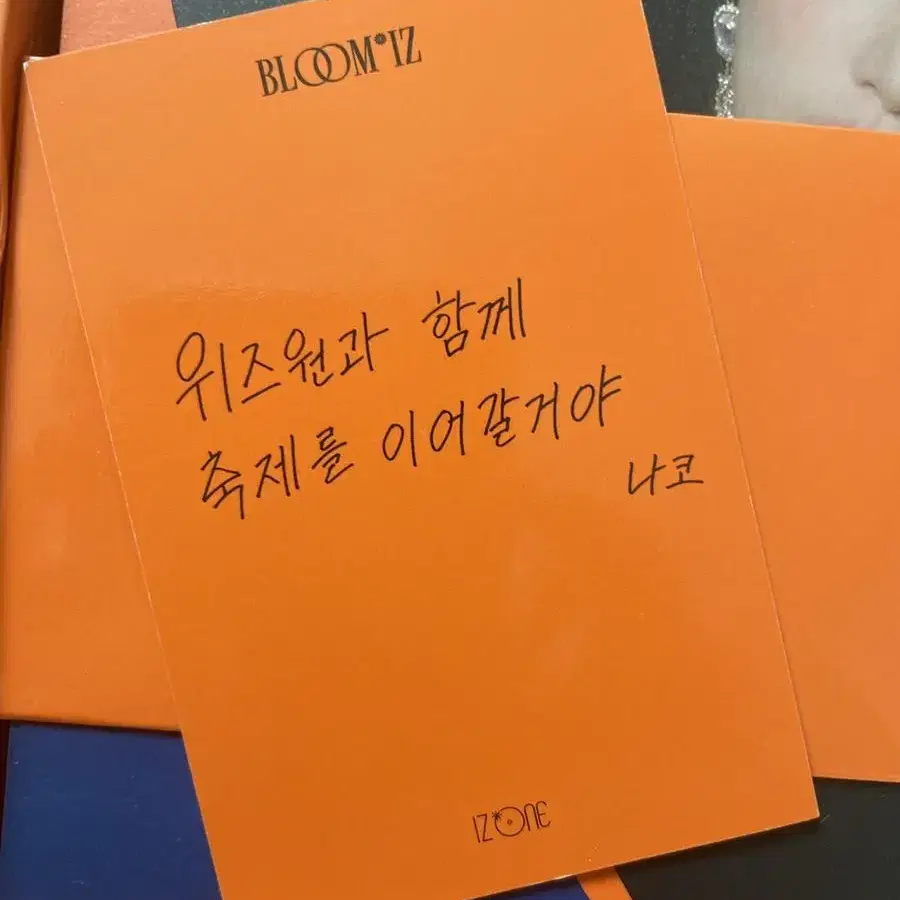 BLOOM*IZ
위즈원과 함께
축제를 이어갈거야
나코
IZ*ONE